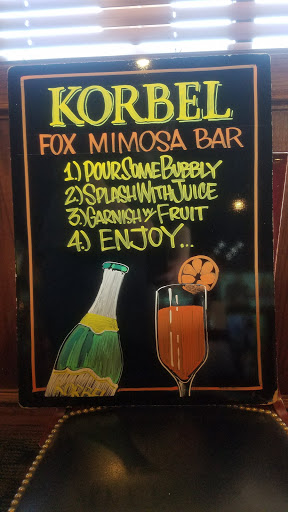 KORBEL
FOX MIMOSA BAR
1.) POUR SOME BUBBLY
2.) SPLASH WITH JUICE
3.) GARNISH W/ FRUIT
4.) ENJOY...